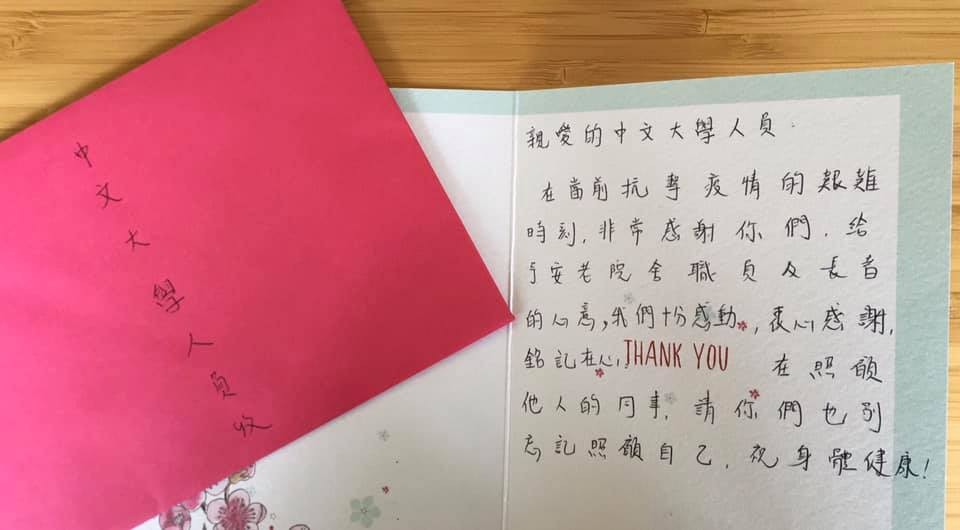 中文大學人員收
親愛的中文大學人員.
在當前抗爭疫情的艱難
時刻,非常感謝你們,給
予安老院舍職員及長者
的心意,我們十份感動,衷心感謝,
銘記在心, THANK YOU 在照顧
他人的同事,請你們也別
忘記照顧自己,祝身體健康!